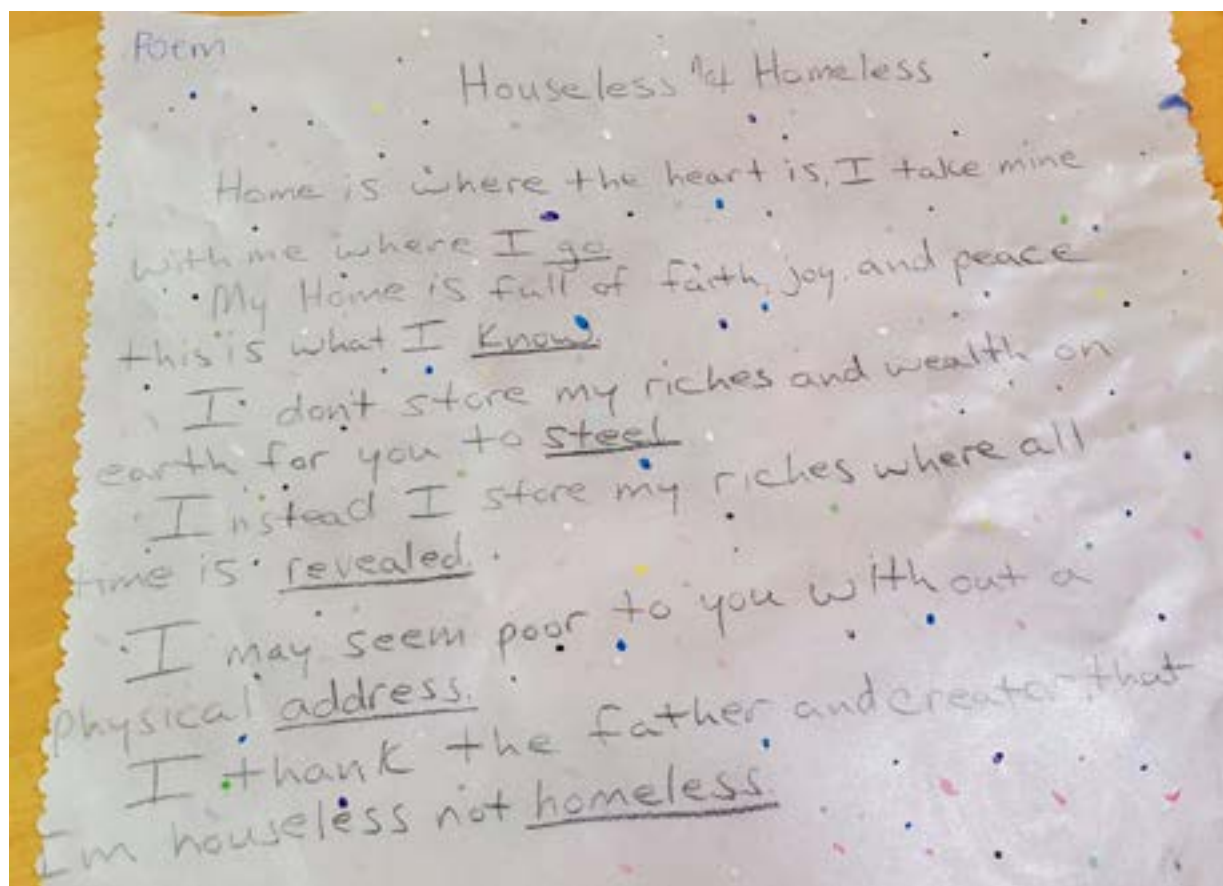 Poem
Houseless Homeless
Home is where the heart is, I take mine
with me where I go
My Home is full of faith, joy, and peace
this is what I know.
I don't store my riches and wealth on
earth for you to steel
Instead I store my riches where all
time is revealed.
I may seem poor to you without a
physical address.
I thank the father and creator that
Im houseless not homeless.